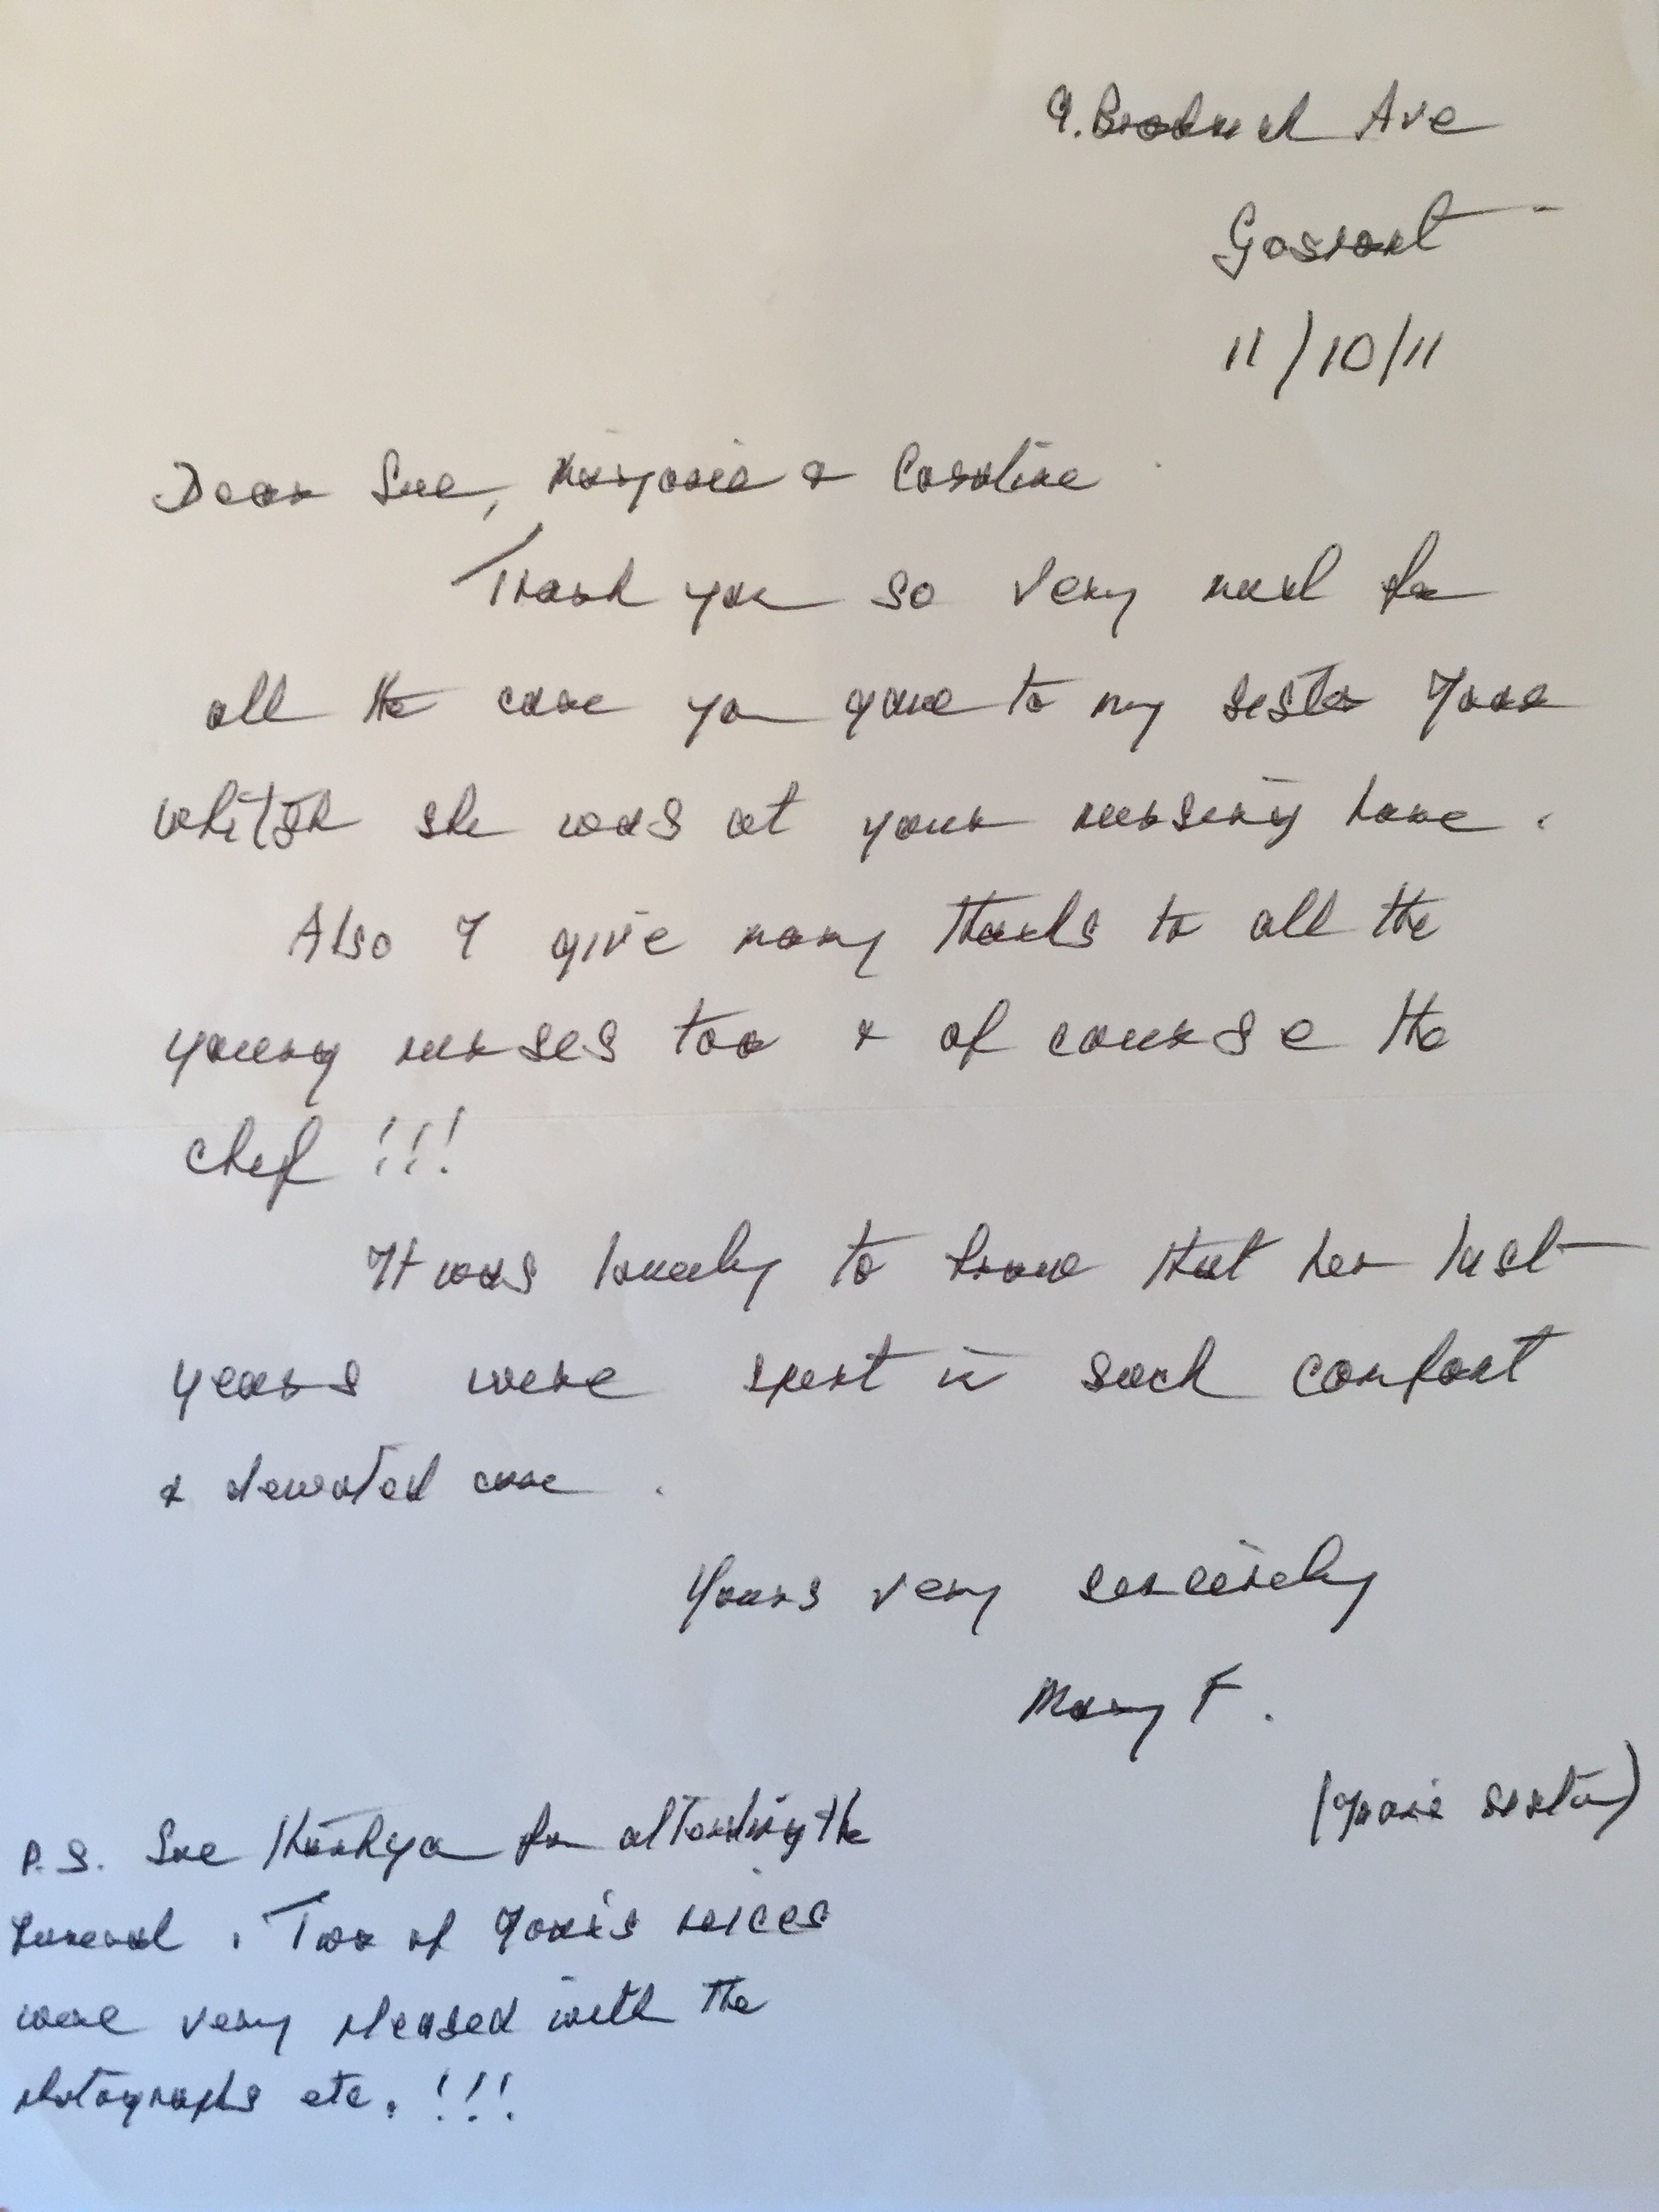 9. Ave
Gosport
11/10/11
Dear Sue, Marjorie & Caroline
Thank you so very much for
all the care you gave to my sister Joan
whilst she was at your nursing home.
Also I give many thanks to all the
young nurses too & of course the
chef !!!
It was lovely to know that her last
years were spent in such comfort
& devoted care.
Yours very sincerely
Mary F.
(Joan's sister)
P.S. Sue thankyou for attending the
funeral. Two of Joan's neices
were very pleased with the
photographs etc. !!!